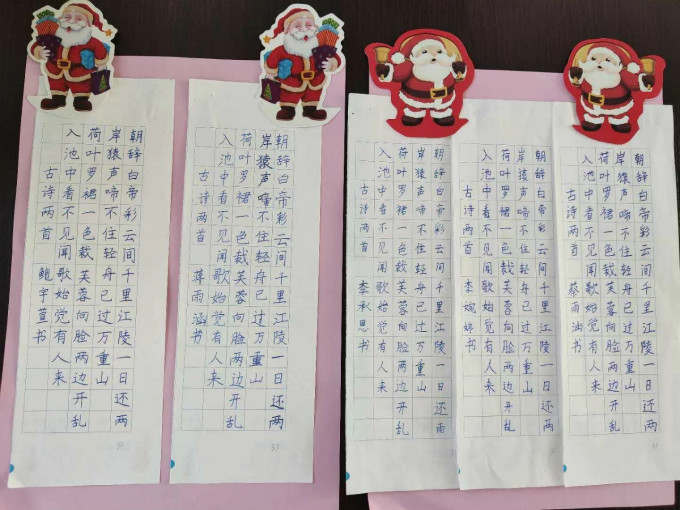 朝辞白帝彩云间千里江陵一日还两
岸猿声啼不住轻舟已过万重山
荷叶罗裙一色裁芙蓉向脸两边开乱
入池中看不见闻歌始觉有人来
古诗两首 鲍宇萱书
朝辞白帝彩云间千里江陵一日还两
岸猿声啼不住轻舟已过万重山
荷叶罗裙一色裁芙蓉向脸两边开乱
入池中看不见闻歌始觉有人来
古诗两首 蒋雨涵书
朝辞白帝彩云间千里江陵一日还两
岸猿声啼不住轻舟已过万重山
荷叶罗裙一色裁芙蓉向脸两边开乱
入池中看不见闻歌始觉有人来
古诗两首 李承思书
朝辞白帝彩云间千里江陵一日还两
岸猿声啼不住轻舟已过万重山
荷叶罗裙一色裁芙蓉向脸两边开乱
入池中看不见闻歌始觉有人来
古诗两首 李婉婷书
朝辞白帝彩云间千里江陵一日还两
岸猿声啼不住轻舟已过万重山
荷叶罗裙一色裁芙蓉向脸两边开乱
入池中看不见闻歌始觉有人来
古诗两首 蔡雨涵书